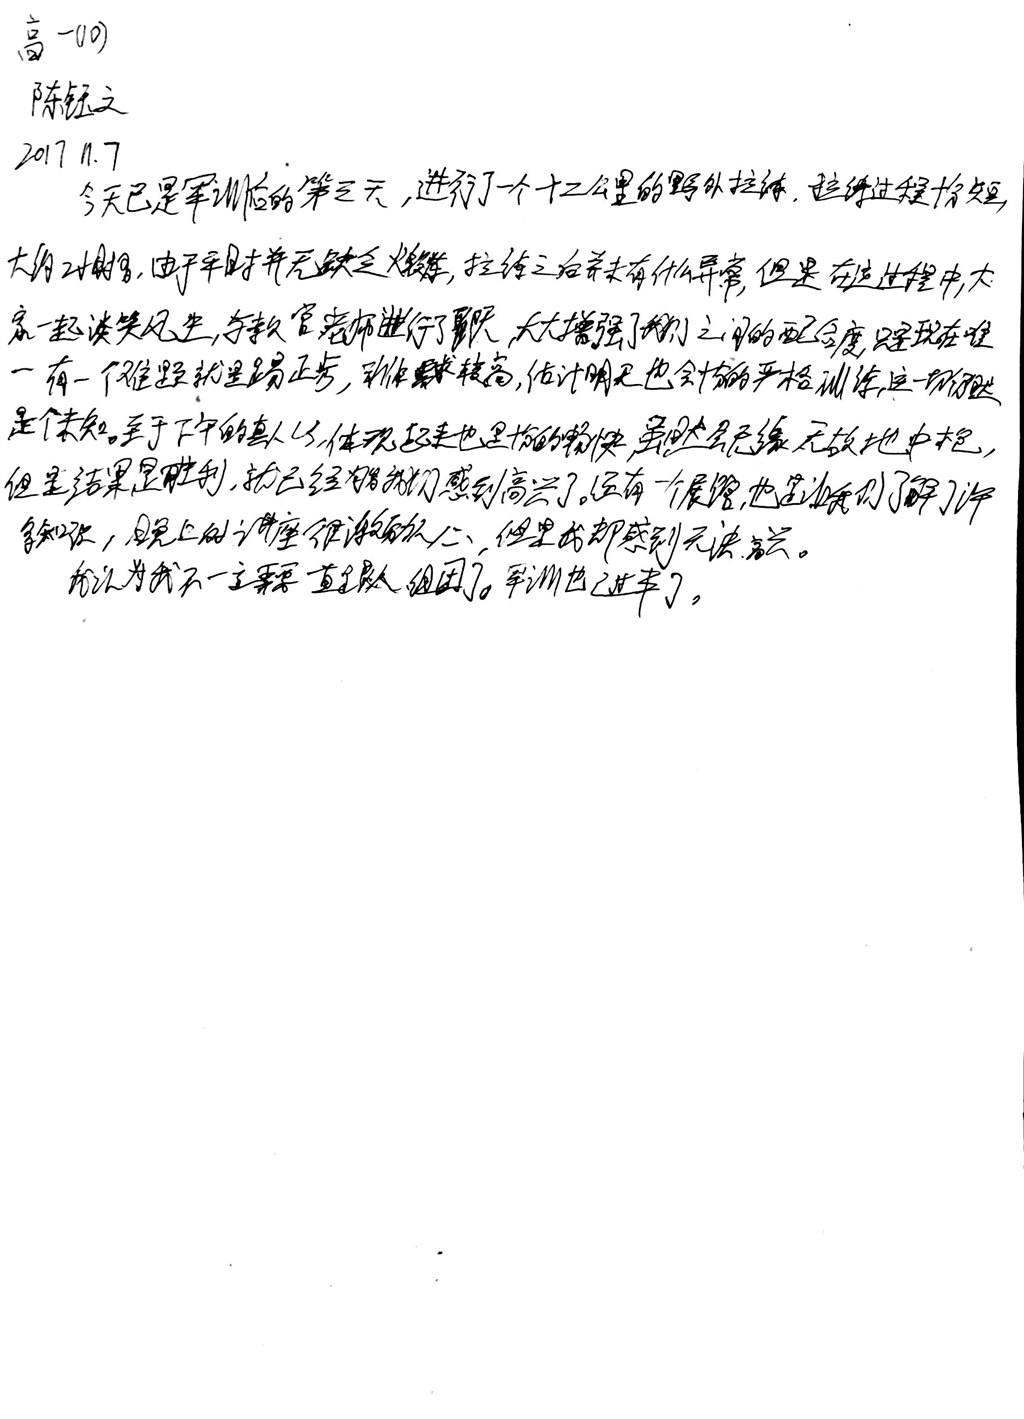 高一(10)
陈钰文
2017 11.7
今天已是军训后的第三天，进行了一个十二公里的野外拉练，拉练过程十分短，
大约2小时多，由于平时并无缺乏锻炼，拉练之后并未有什么异常，但是在这过程中，大
家一起谈笑风生，与教官老师进行了聊天，大大增强了我们之间的配合度，只是现在唯
一有一个难题就是踢正步，要求较高，估计明天也会十分的严格训练，这一切仍然
是个未知。至于下午的真人CS，体现起来也是十分的畅快，虽然会无缘无故地中枪，
但是结果是胜利，就已经让我们感到高兴了。还有一个展馆，也是让我们了解了许
多知识，且晚上的讲座很激励人心，但是我却感到无法高兴。
我认为我不一定需要一直 组团了。军训也已过半了。